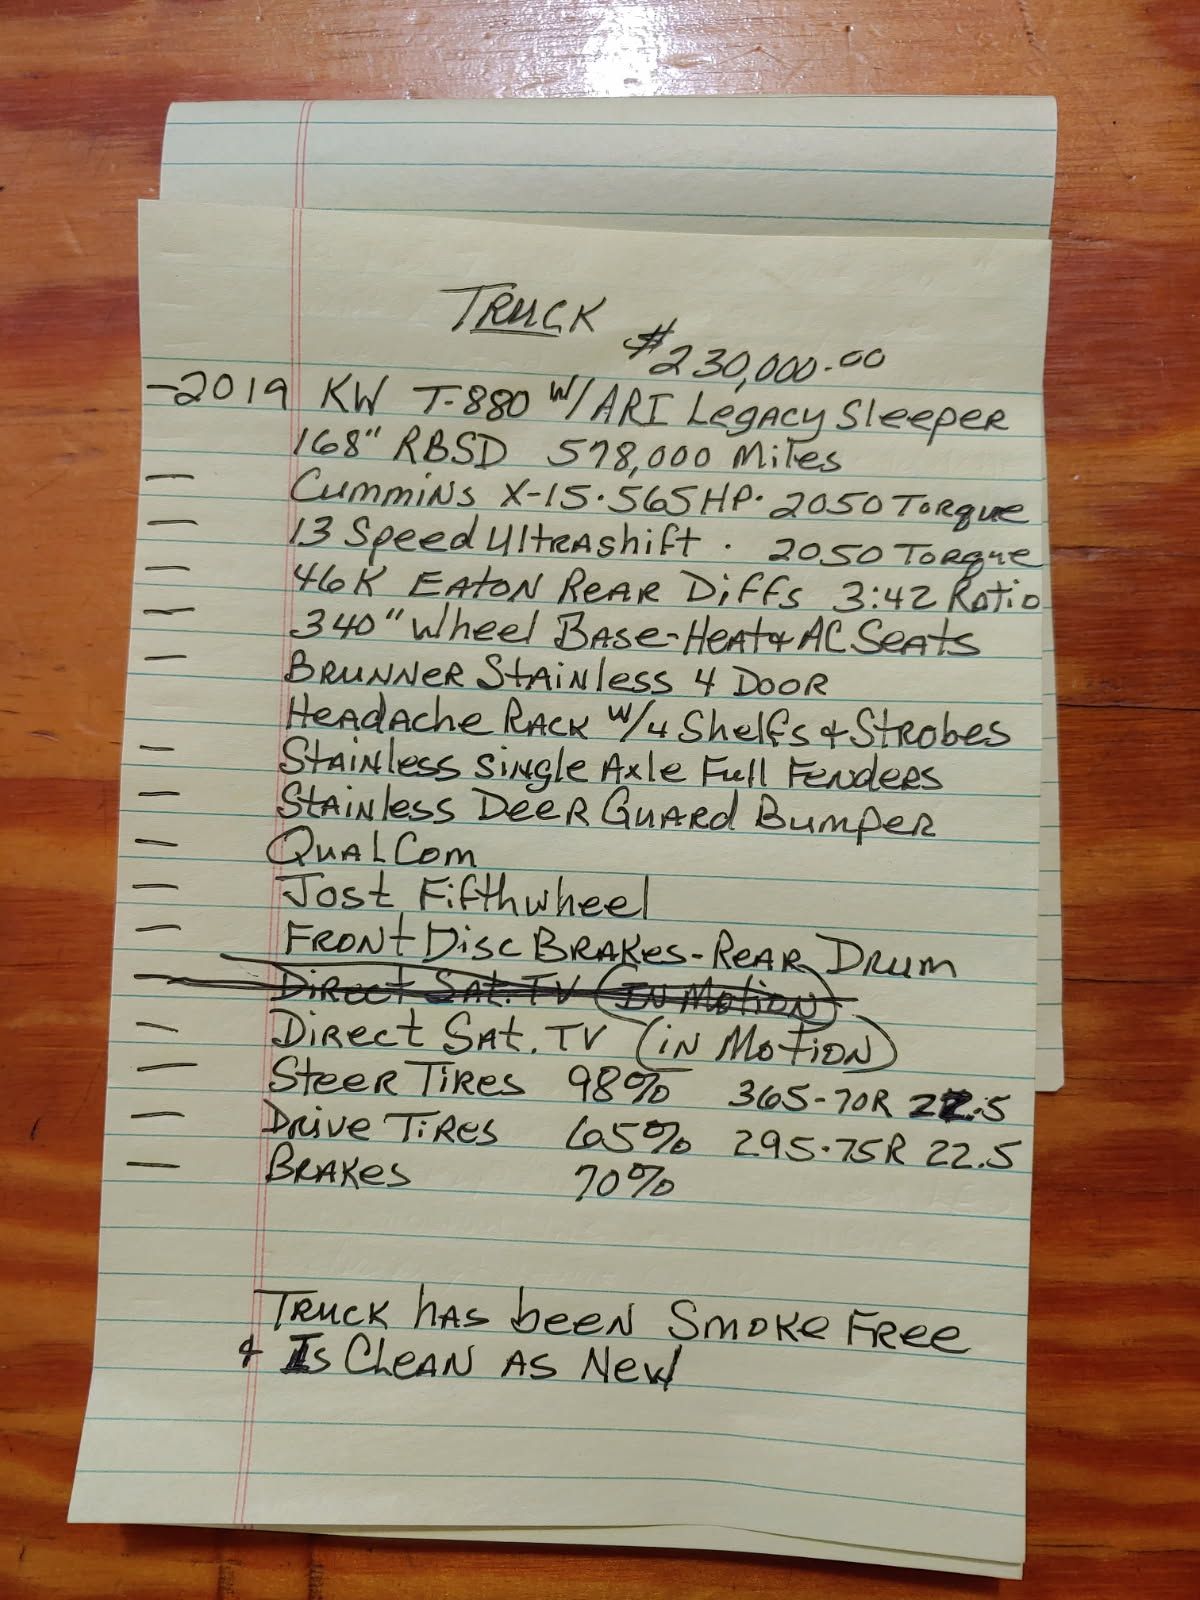 TRUCK
$230,000.00
-2019 KW T-880 W/ ARI Legacy Sleeper
168" RBSD 578,000 Miles
- Cummins X-15.565HP. 2050 Torque
- 13 Speed Ultrashift . 2050 Torque
- 46K EATON REAR Diffs 3:42 Ratio
- 340" Wheel BASE-Heat & AC Seats
- BRUNNER Stainless 4 DOOR
Headache Rack W/4 Shelfs & Strobes
- Stainless Single Axle Full Fenders
- Stainless Deer Guard Bumper
- QualCom
- Jost Fifthwheel
- FRONt Disc BRAKes-ReaR DRum
- Direct Sat. TV (IN Motion)
- Direct Sat. TV (in Motion)
- Steer Tires 98% 365-70R 22.5
- Drive Tires 65% 295.75R 22.5
- BRAKes 70%
Truck has been Smoke Free
& Is Clean As New